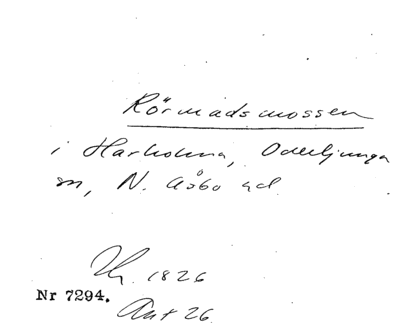 Rörmadsmossen
i Harholma, Oderljunga
sn, N. Åsbo hd
1826
Nr 7294.
Ant 26